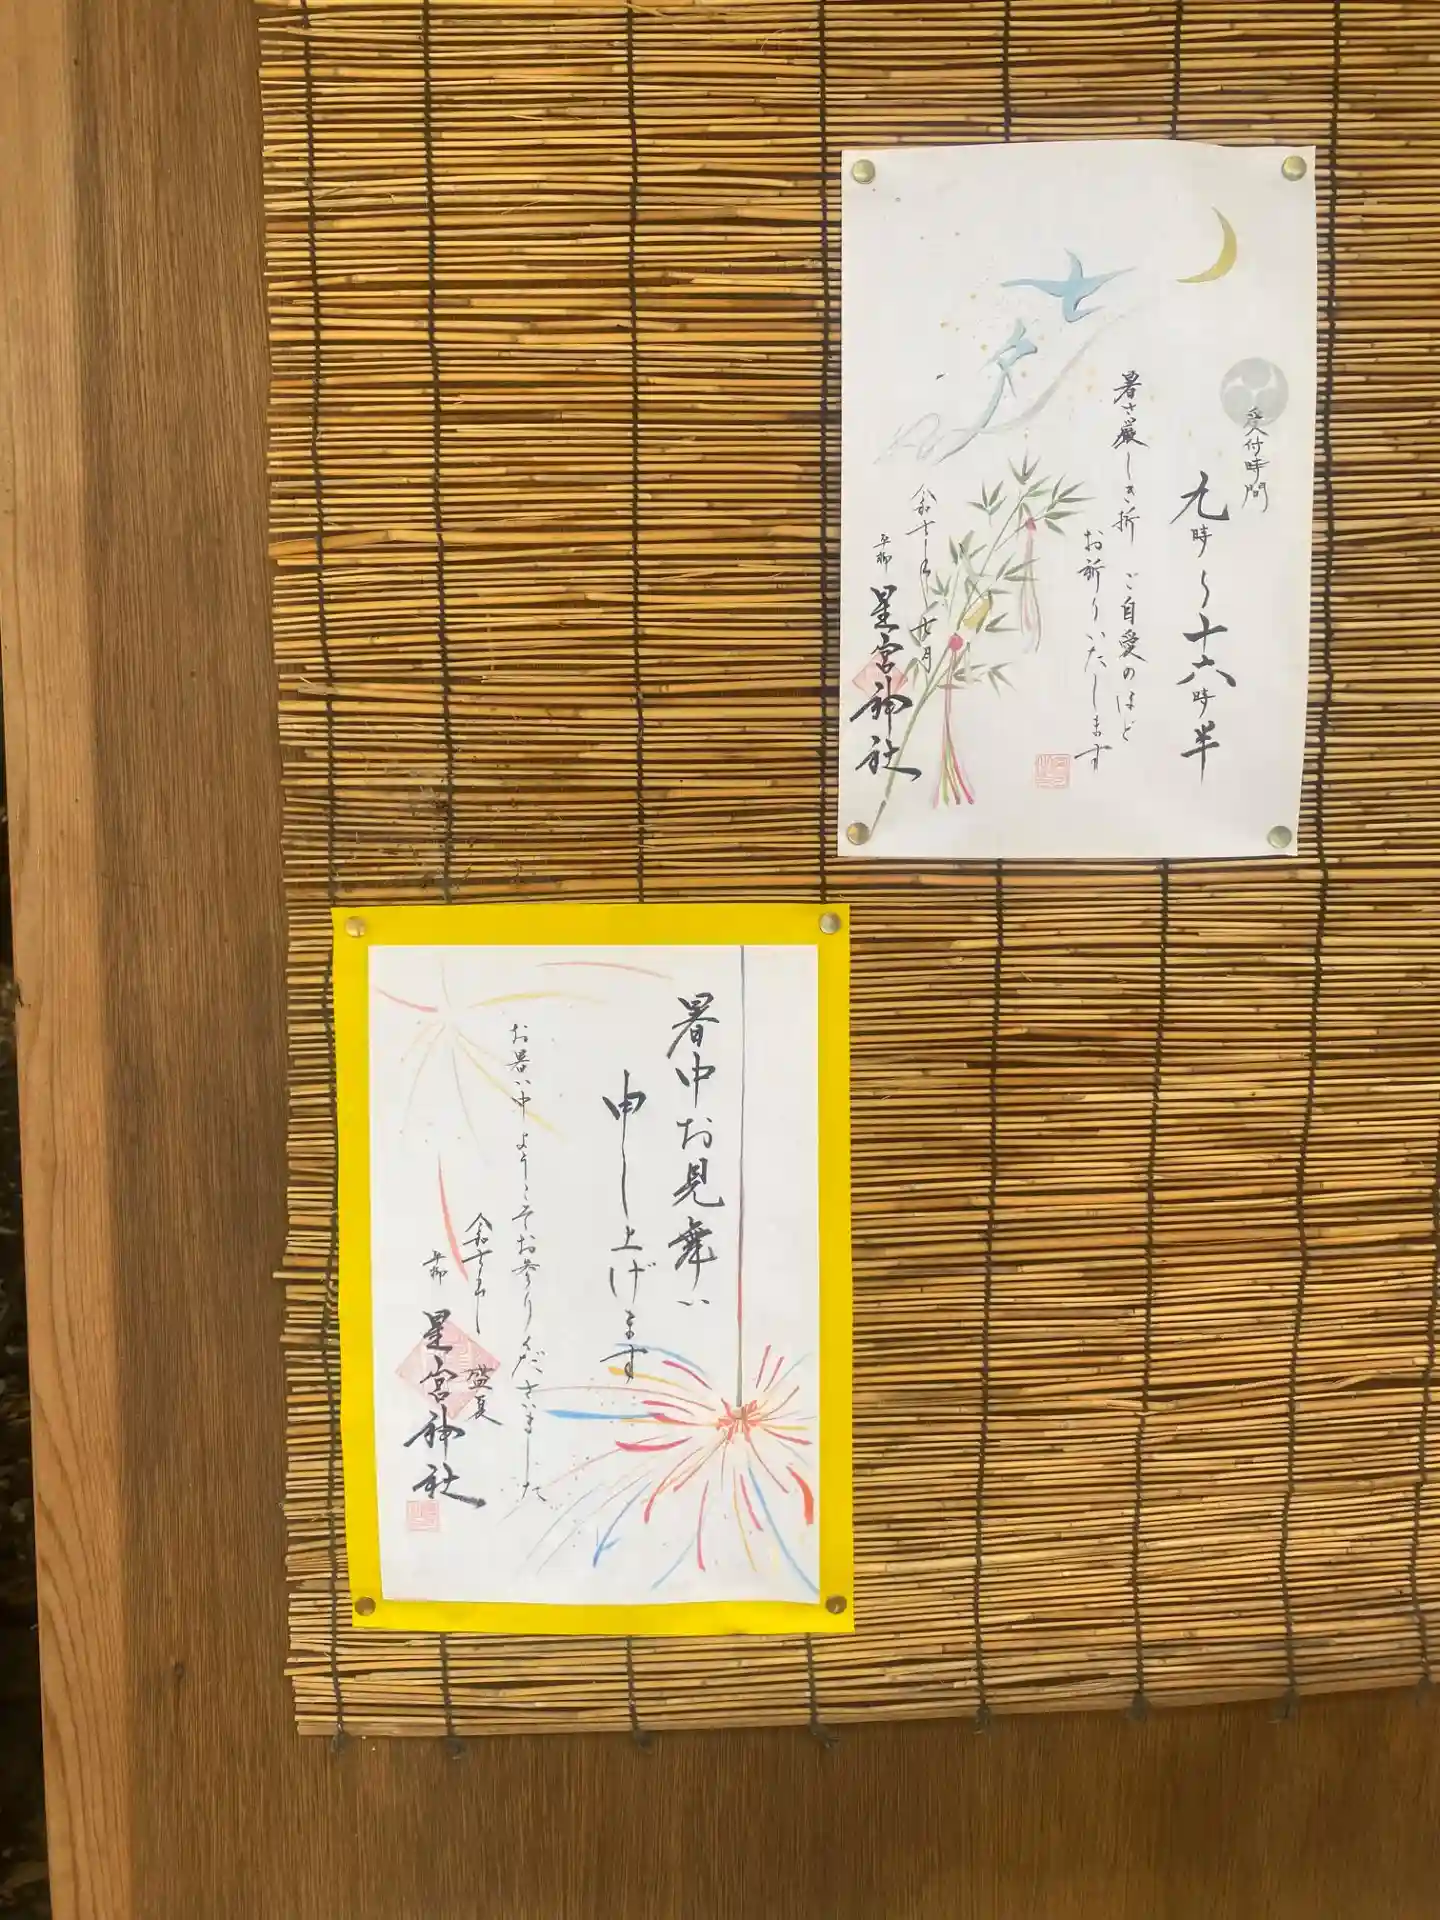 七夕
受付時間
九時〜十六時半
暑さ厳しき折 ご自愛のほど
お祈りいたします
七月
平柳
星宮神社
暑中お見舞い
申し上げます
お暑い中 ようこそお参りくださいました
盛夏
平柳
星宮神社